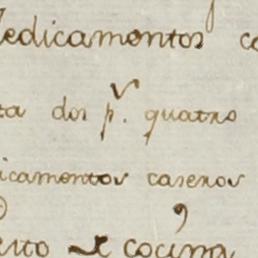 Medicamentos
dos p.r quatro
icamentos caseros
cocina